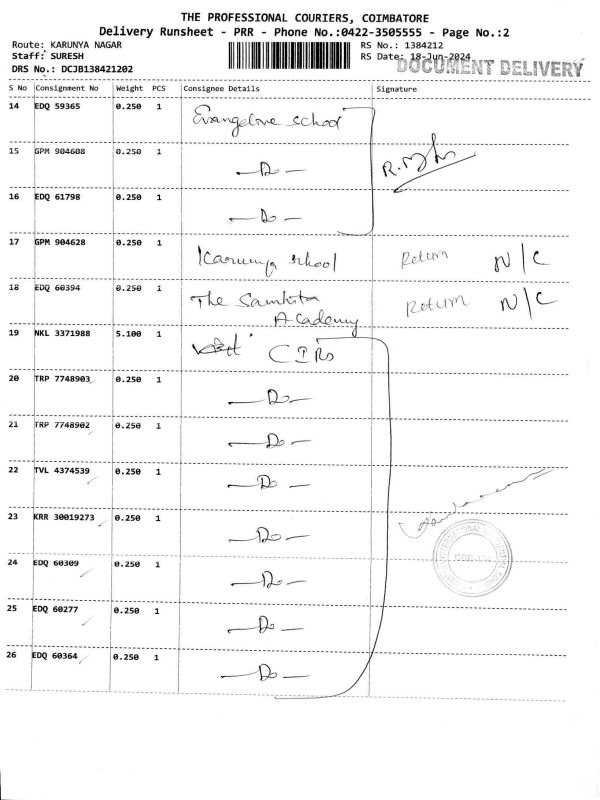 THE PROFESSIONAL COURIERS, COIMBATORE
Delivery Runsheet - PRR - Phone No.:0422-3505555 - Page No.:2
Route: KARUNYA NAGAR RS No.: 1384212
Staff: SURESH RS Date: 18-Jun-2024
DOCUMENT DELIVERY
DRS No.: DCJB138421202
S No Consignment No Weight PCS Consignee Details Signature
14 EDQ 59365 0.250 1 Evangeline school
15 GPM 904608 0.250 1 —Do—
16 EDQ 61798 0.250 1 —Do—
17 GPM 904628 0.250 1 Karunya school Return N/C
18 EDQ 60394 0.250 1 The Samhita Academy Return N/C
19 NKL 3371988 5.100 1 CIRs
20 TRP 7748903 0.250 1 —Do—
21 TRP 7748902 0.250 1 —Do—
22 TVL 4374539 0.250 1 —Do—
23 KRR 30019273 0.250 1 —Do—
24 EDQ 60309 0.250 1 —Do—
25 EDQ 60277 0.250 1 —Do—
26 EDQ 60364 0.250 1 —Do—